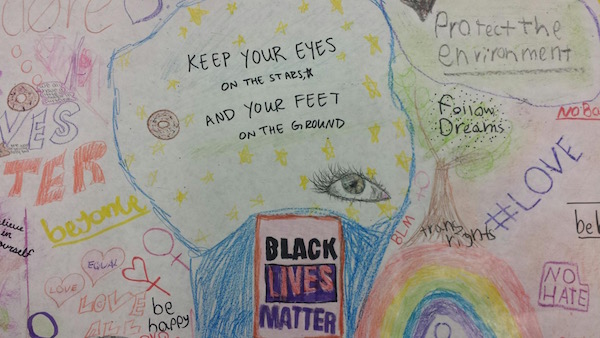 KEEP YOUR EYES
ON THE STARS,*
AND YOUR FEET
ON THE GROUND
Protect the
environment
Follow
Dreams
NO BO
#LOVE
VES
TER
beyonce
lieve
in
ourself
LOVE
LOVE
ALL
be
happy
BLACK
LIVES
MATTER
BLM
trans
rights
bel
NO
HATE